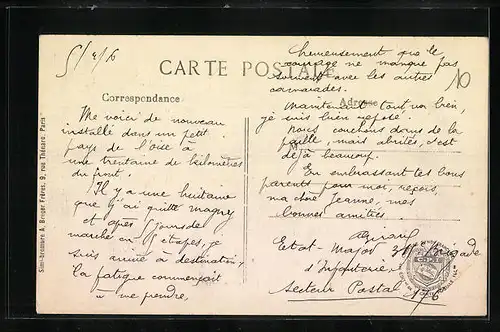 5/2/6
CARTE POSTALE
Correspondance
Adresse
Me voici de nouveau
installé dans un petit
pays de l'oise à
une trentaine de kilomètres
du front.
Il y a une huitaine
que j'ai quitté magny
et après jours de
marche en étapes, je
suis arrivé à destination;
la fatigue commençait
à me prendre,
heureusement que le
courage ne manque pas
souvent avec les autres
camarades.
Maintenant tout va bien,
je suis bien reposé.
Nous couchons dans de la
paille, mais abrités, c'est
déjà beaucoup.
En embrassant tes bons
parents pour moi, reçois,
ma chère Jeanne, mes
bonnes amitiés.
Etat-Major Brigade
d'Infanterie,
Secteur Postal 176
10
Simi-bromure A. Breger Frères, 9, rue Thénard, Paris